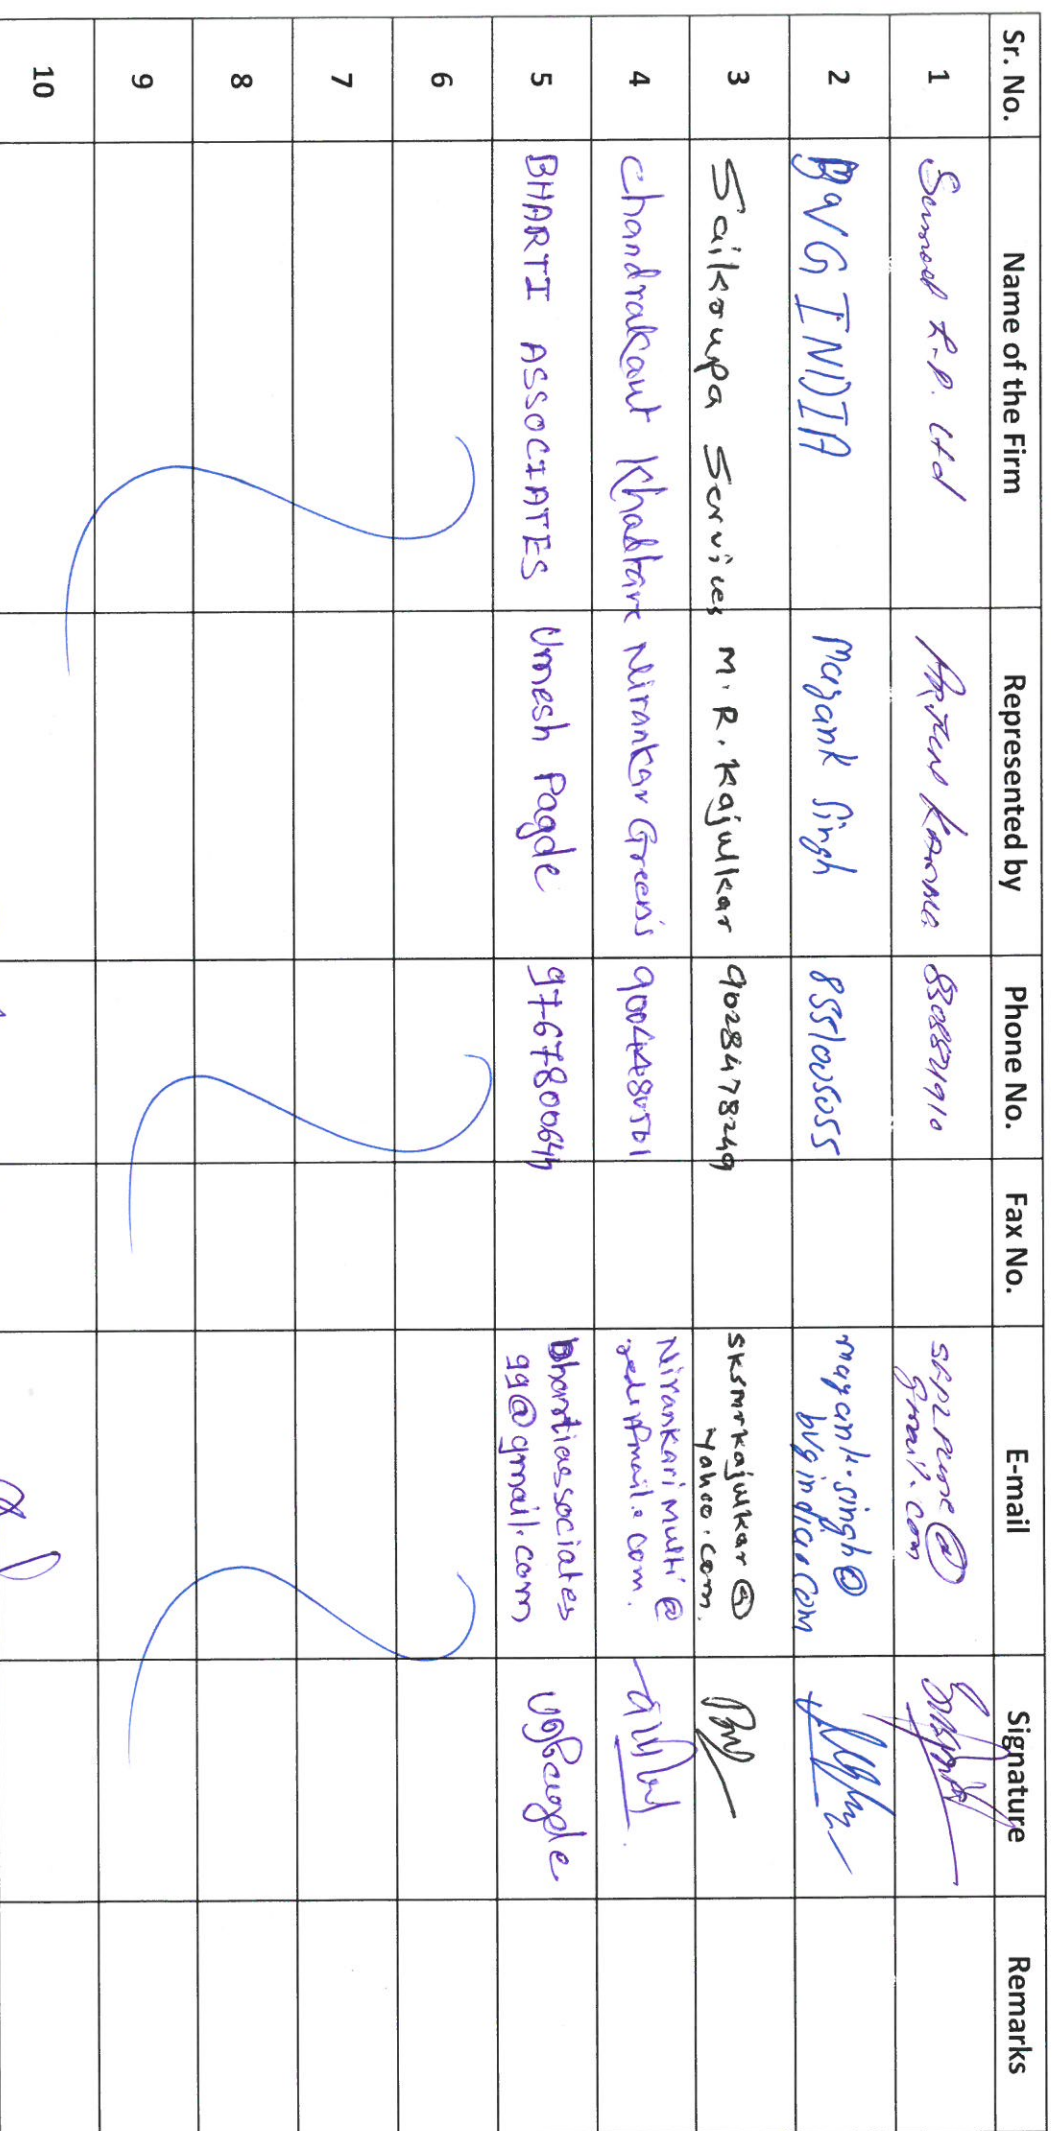 Sr. No. Name of the Firm Represented by Phone No. Fax No. E-mail Signature Remarks
1 R.P. Ltd 8308821910 @
gmail.com
2 BVG INDIA Mayank Singh 8551005055 mayank.singh@
bvgindia.com
3 Saikrupa Services M.R. Kajulkar 9028478249 sksmrkajulkar@
yahoo.com.
4 Chandrakant Khaltare Nirankar Green's Nirankari multi@
rediffmail.com.
5 BHARTI ASSOCIATES Umesh Pagde bhartiassociates
99@gmail.com
6
7
8
9
10